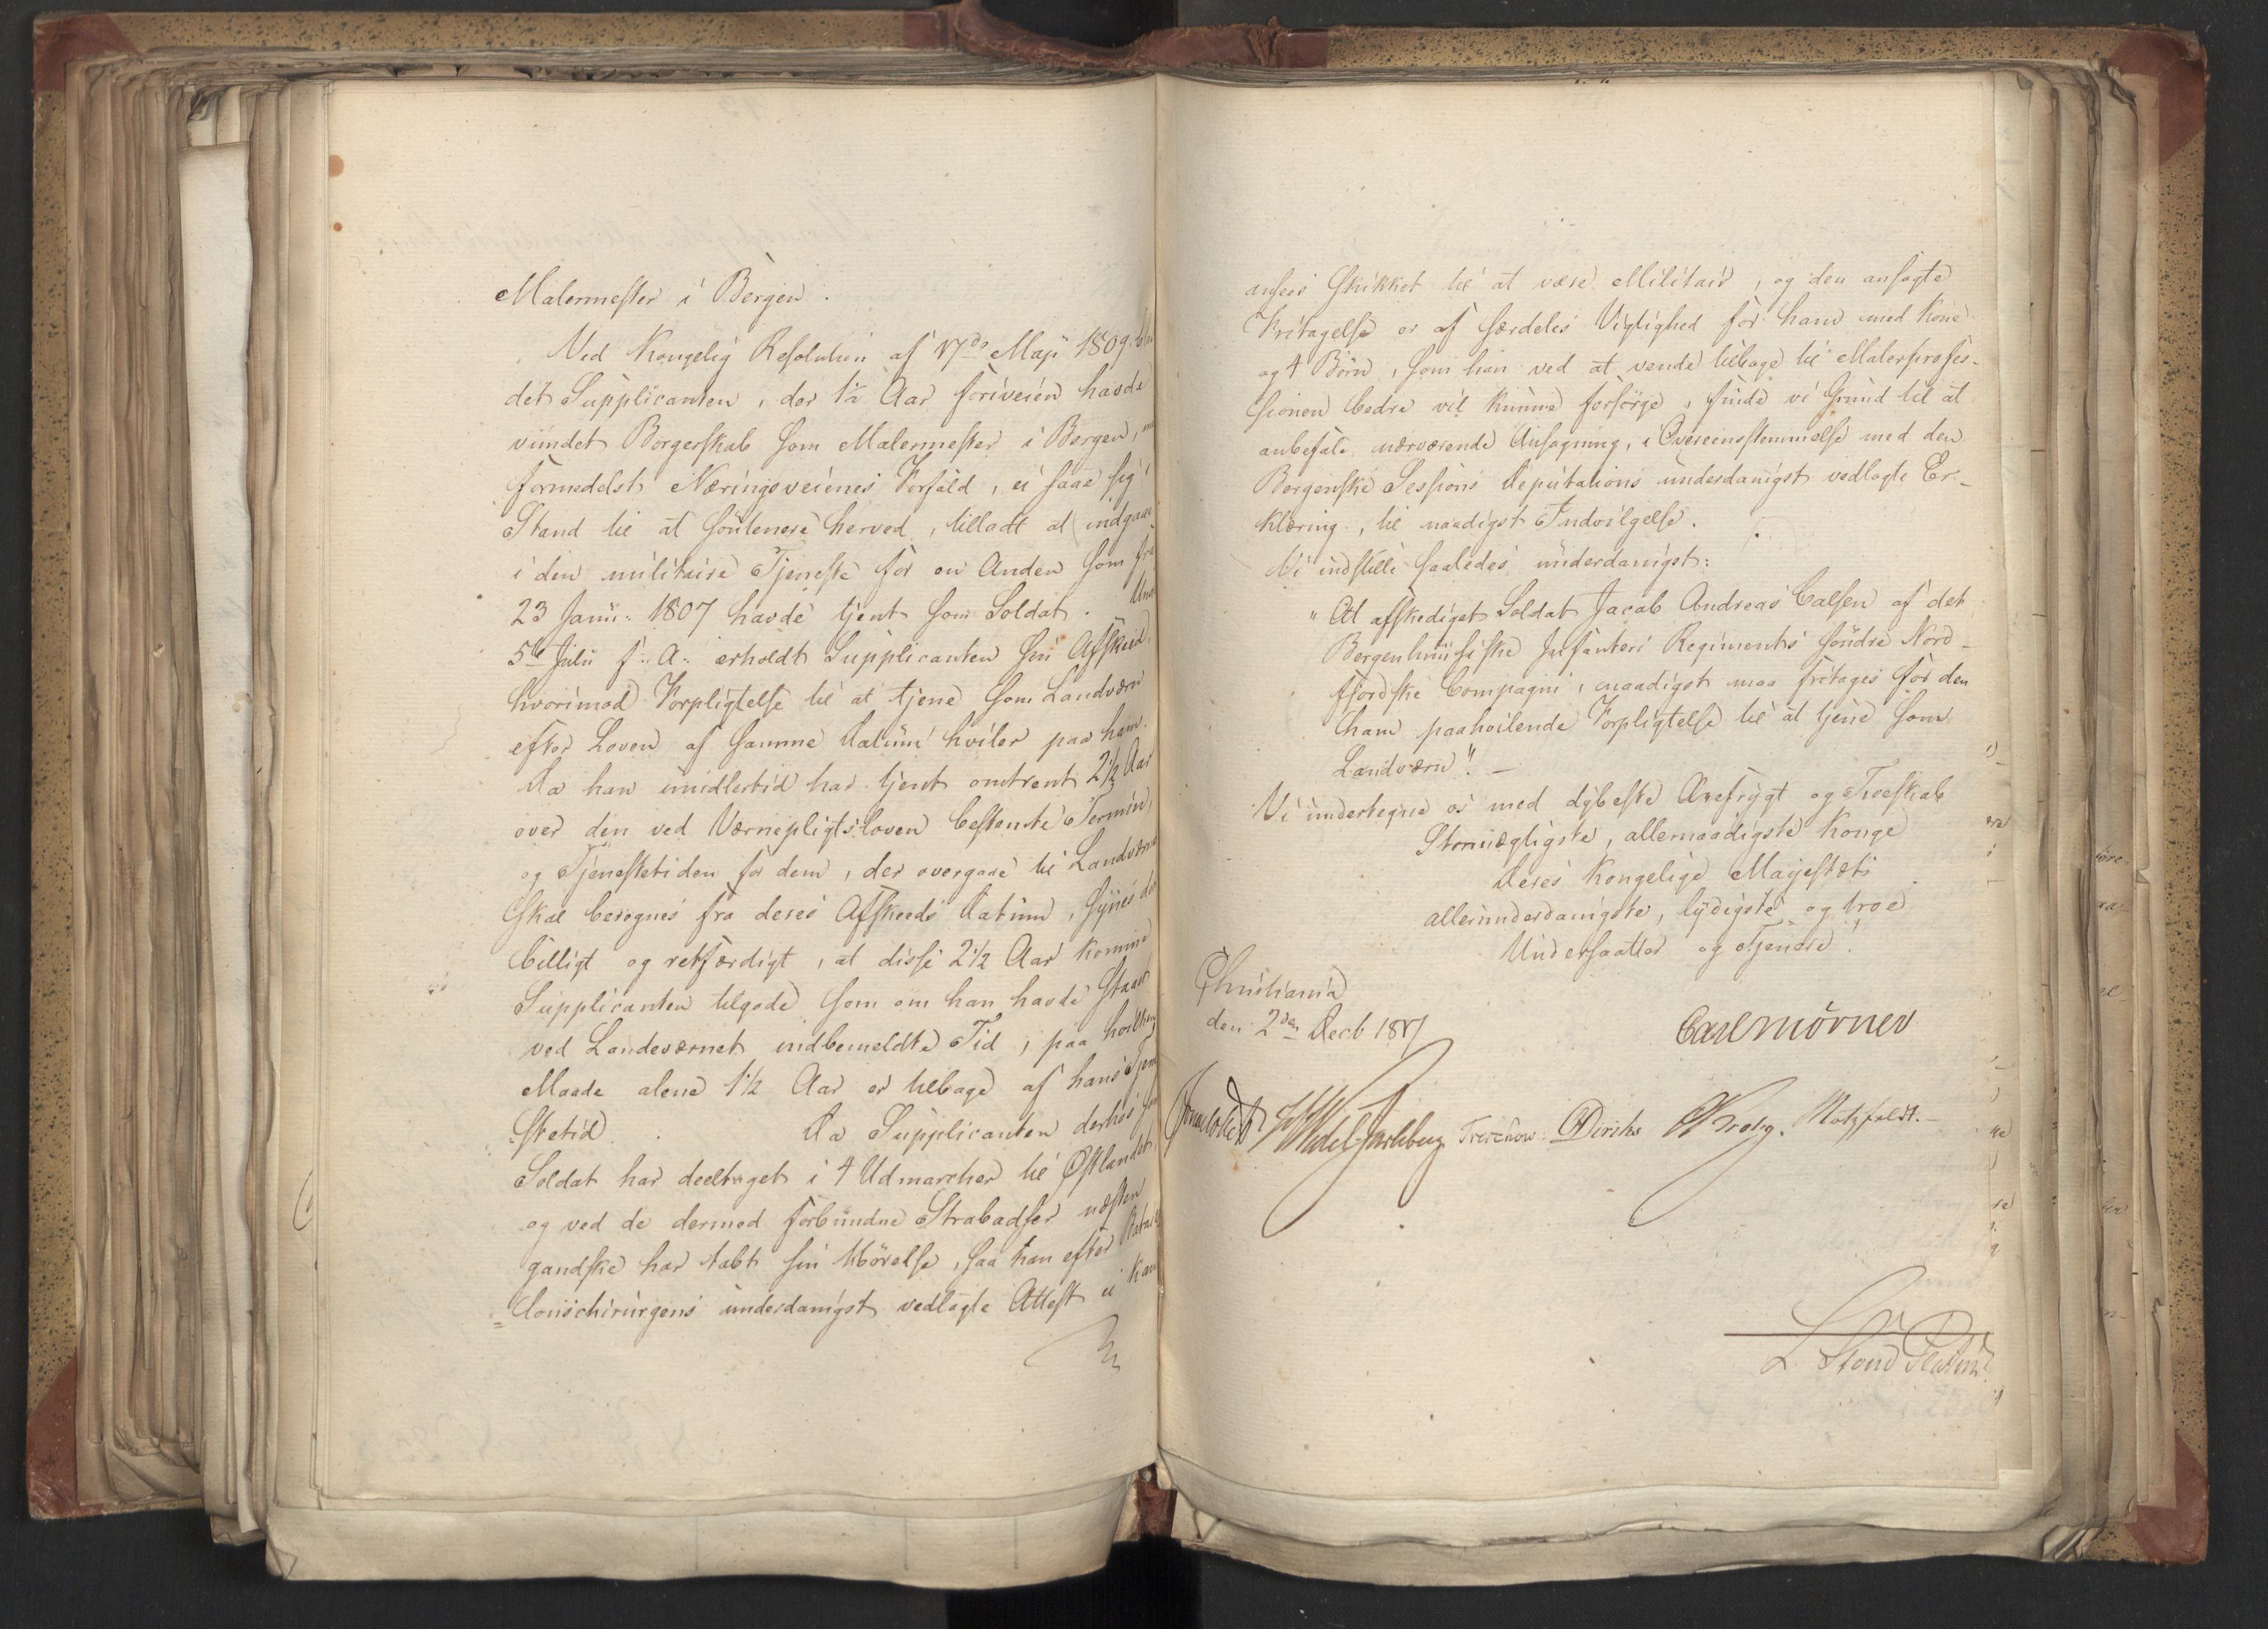 Malermester i Bergen.
Ved Kongelig Resolution af 17de Maji 1809 blev
det Supplicanten, der 1½ Aar foriveien havde
vundet Borgerskab som Malermester i Bergen, men
formedelst Næringsveienes Forfald, ei saae sig i
Stand til at soutenere herved, tilladt at indgaae
i den militaire Tjeneste for en Anden som fra
23 Janu: 1807 havde tjent som Soldat. Under
5te Julii f: A: erholdt Supplicanten sin Afskeed,
hvorimod Forpligtelse til at tjene som Landværn
efter Loven af samme Datum hviler paa ham.
Da han imidlertid har tjent omtrent 2½ Aar
over den ved Værnepligtsloven bestemte Termin,
og Tjenestetiden for dem, der overgaae til Landværnet
skal beregnes fra deres Afskeeds Datum, synes det
billigt og retfærdigt, at disse 2½ Aar komme
Supplicanten tilgode som om han havde staaet
ved Landeværnet indbemeldte Tid, paa hvilken
Maade alene 1½ Aar er tilbage af hans Tjene-
stetid. Da Supplicanten derhos som
Soldat har deeltaget i 4 Udmarcher til Østlandet,
og ved de dermed forbundne Strabadser næsten
gandske har tabt sin Hörelse, saa han efter Batail-
lonschirurgens underdanigst vedlagte Attest ei kan
ansees skikket til at være Militair, og den ansøgte
Fritagelse er af særdeles Vigtighed for ham med Kone
og 4 Börn, som han ved at vende tilbage til Malerprofes-
sionen bedre vil kunne forsörge, finde vi Grund til at
anbefale nærværende Ansøgning, i Overeensstemmelse med den
Bergenske Sessions Deputations underdanigst vedlagte Er-
klæring, til naadigst Indvilgelse.
Vi indstille saaledes underdanigst:
"At afskediget Soldat Jacob Andreas Calsen af det
Bergenhuusiske Infanteri Regiments söndre Nord-
fjordske Compagni, naadigst maa fritages for den
ham paahvilende Forpligtelse til at tjene som
Landværn". —
Vi undertegne os med dybeste Ærefrygt og Troeskab
Stormægtigste, allernaadigste Konge
Deres Kongelige Majestæts
allerunderdanigste, lydigste og troe
Undersaatter og Tjenere.
Christiania
den 2den Decb 1817
Carl Mörner
Sommerhielm Wedel Jarlsberg Treschow Diriks Krohg. Motzfeldt.
L. Stoud Platou